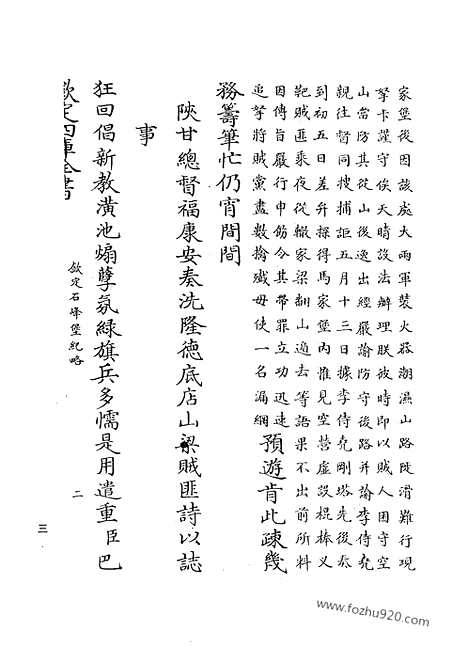 家堡後因該處大雨軍裝火器潮濕山路陡滑難行現
拏卡謹守俟天晴設法辦理朕彼時即以賊人困守空
山當防其從山後逸出經嚴諭防守後路并諭李侍堯
親往督同搜捕詎五月十三日據李侍堯剛塔先後奏
到初五日差弁探得馬家堡內惟見空營虛設棍棒义
靶賊匪乘夜從轍家梁翻山過去等語果不出前所料
因傳旨嚴行申飭令其帶罪立功迅速
追拏將賊黨盡數擒殱毋使一名漏網
預遊肯此疎幾
務籌筆忙仍宵間間
陝甘總督福康安奏洗隆德底店山梁賊匪詩以誌
事
狂回倡新教潢池煽孽氛緑旗兵多懦是用遣重臣巴
欽定四庫全書
欽定石峰堡紀略
二
三
www.fozhu920.com